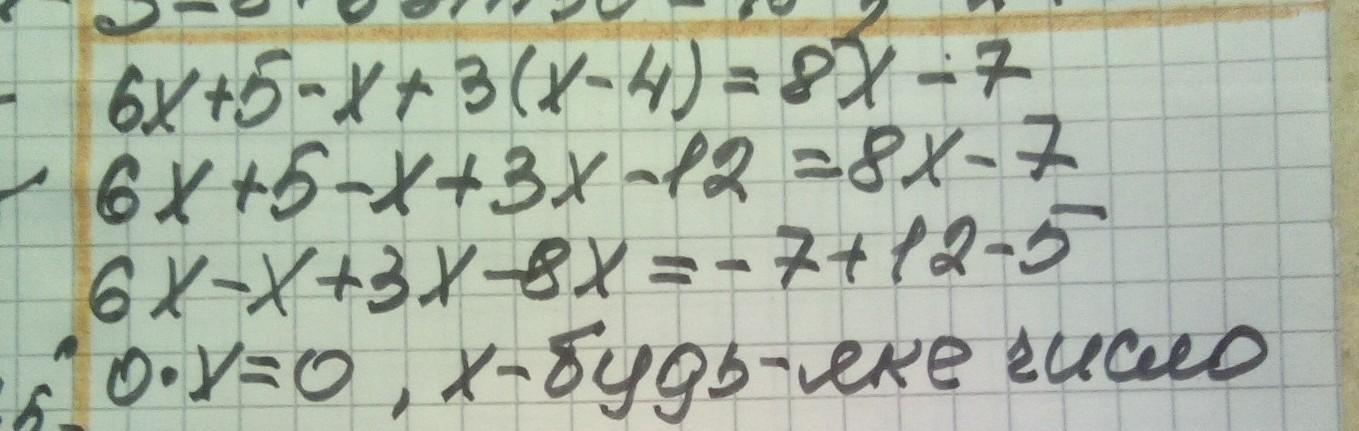 6x+5-x+3(x-4)=8x-7
6x+5-x+3x-12=8x-7
6x-x+3x-8x=-7+12-5
0·x=0, x-будь-яке число